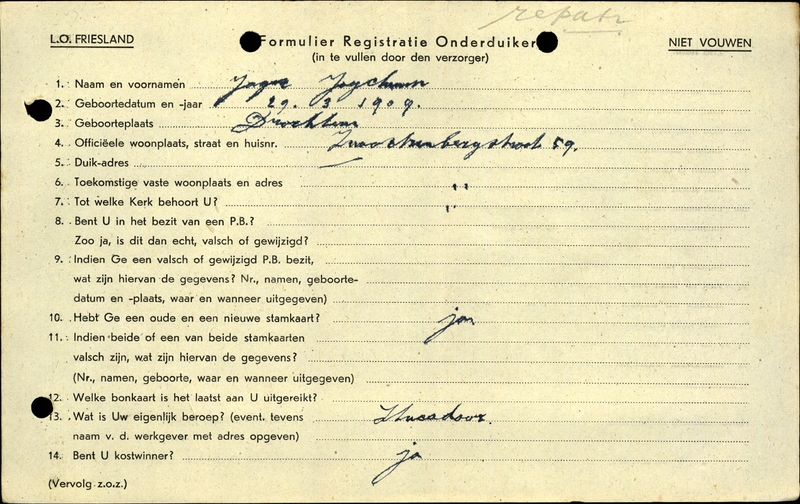 repatr
L.O. FRIESLAND
Formulier Registratie Onderduiker
NIET VOUWEN
(in te vullen door den verzorger)
1. Naam en voornamen
2. Geboortedatum en -jaar 29. 3 1909.
3. Geboorteplaats Drachten
4. Officiëele woonplaats, straat en huisnr. 59.
5. Duik-adres
6. Toekomstige vaste woonplaats en adres "
7. Tot welke Kerk behoort U? "
8. Bent U in het bezit van een P.B.?
Zoo ja, is dit dan echt, valsch of gewijzigd?
9. Indien Ge een valsch of gewijzigd P.B. bezit,
wat zijn hiervan de gegevens? Nr., namen, geboorte-
datum en -plaats, waar en wanneer uitgegeven)
10. Hebt Ge een oude en een nieuwe stamkaart? ja
11. Indien beide of een van beide stamkaarten
valsch zijn, wat zijn hiervan de gegevens?
(Nr., namen, geboorte, waar en wanneer uitgegeven)
12. Welke bonkaart is het laatst aan U uitgereikt?
13. Wat is Uw eigenlijk beroep? (event. tevens
naam v. d. werkgever met adres opgeven)
14. Bent U kostwinner? ja
(Vervolg z.o.z.)